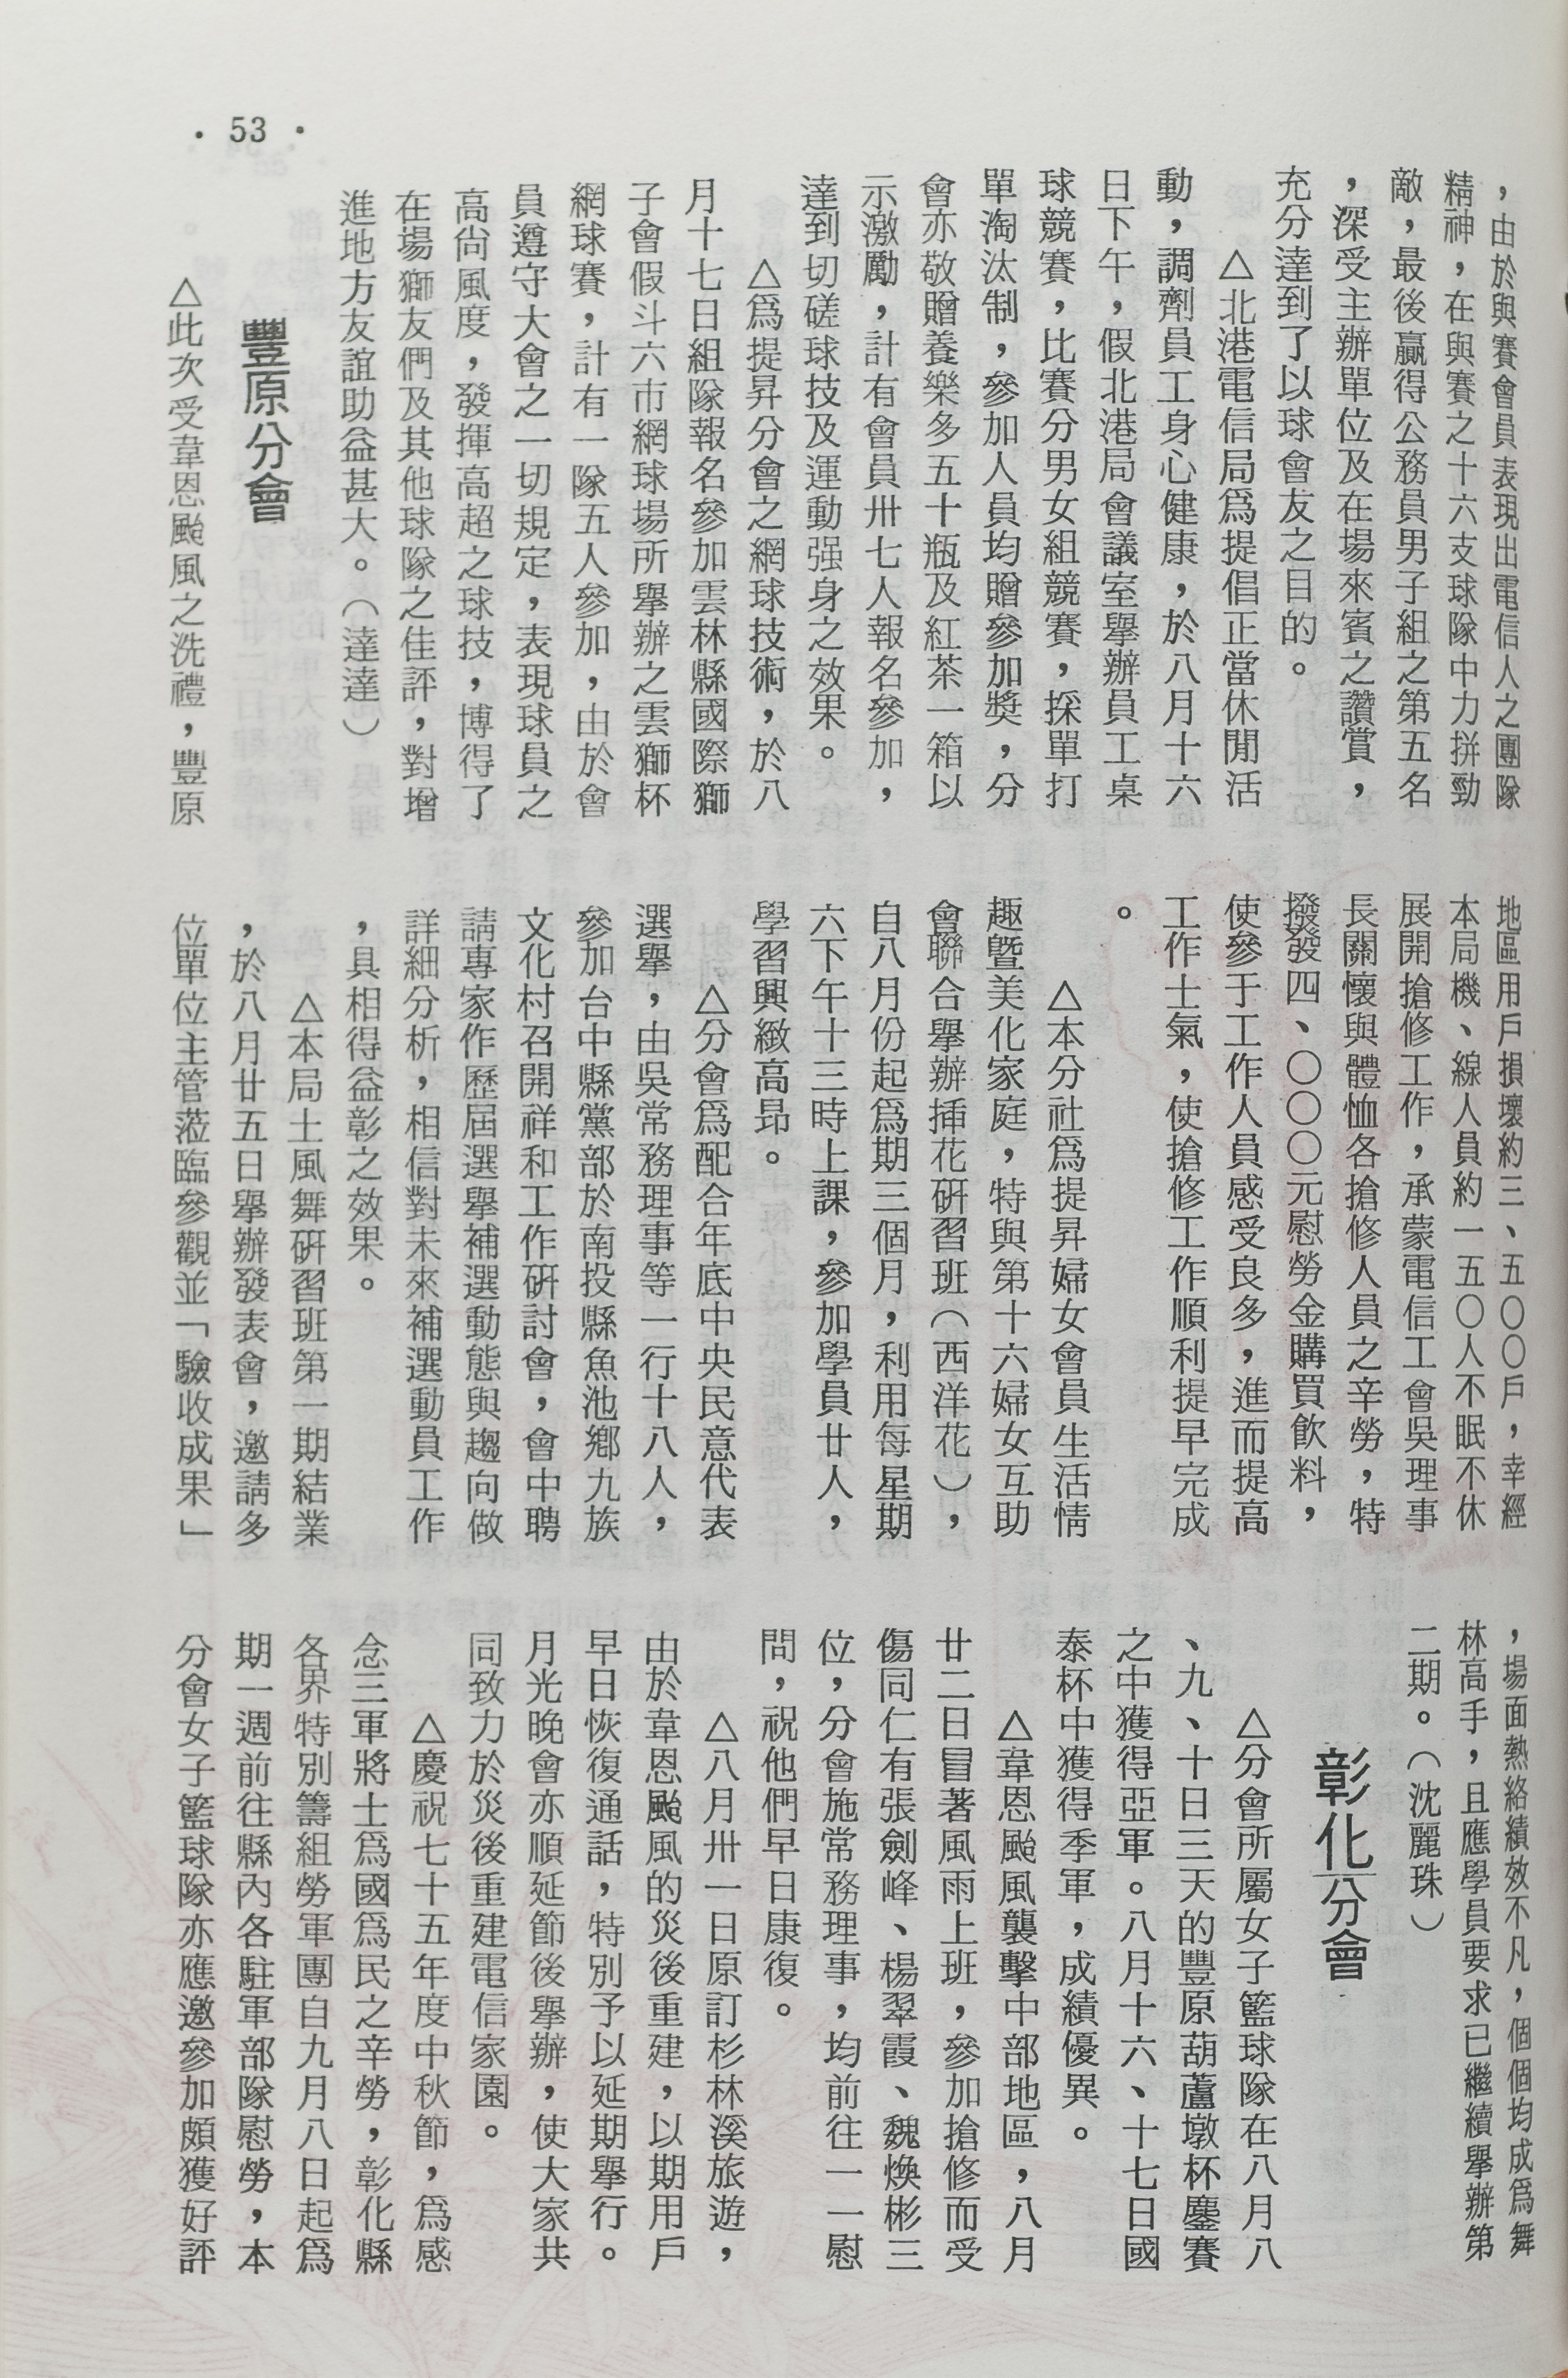 ・53・
，由於與賽會員表現出電信人之團隊
精神，在與賽之十六支球隊中力拼勁
敵，最後贏得公務員男子組之第五名
，深受主辦單位及在場來賓之讚賞，
充分達到了以球會友之目的。
△北港電信局爲提倡正當休閒活
動，調劑員工身心健康，於八月十六
日下午，假北港局會議室舉辦員工桌
球競賽，比賽分男女組競賽，採單打
單淘汰制，參加人員均贈參加獎，分
會亦敬贈養樂多五十瓶及紅茶一箱以
示激勵，計有會員卅七人報名參加，
達到切磋球技及運動强身之效果。
△爲提昇分會之網球技術，於八
月十七日組隊報名參加雲林縣國際獅
子會假斗六市網球場所舉辦之雲獅杯
網球賽，計有一隊五人參加，由於會
員遵守大會之一切規定，表現球員之
高尙風度，發揮高超之球技，博得了
在場獅友們及其他球隊之佳評，對增
進地方友誼助益甚大。（達達）
豐原分會
△此次受韋恩颱風之洗禮，豐原
地區用戶損壞約三、五〇〇戶，幸經
本局機、線人員約一五〇人不眠不休
展開搶修工作，承蒙電信工會吳理事
長關懷與體恤各搶修人員之辛勞，特
撥發四、〇〇〇元慰勞金購買飲料，
使參于工作人員感受良多，進而提高
工作士氣，使搶修工作順利提早完成
。
△本分社爲提昇婦女會員生活情
趣曁美化家庭，特與第十六婦女互助
會聯合舉辦揷花硏習班（西洋花），
自八月份起爲期三個月，利用每星期
六下午十三時上課，參加學員廿人，
學習興緻高昂。
△分會爲配合年底中央民意代表
選舉，由吳常務理事等一行十八人，
參加台中縣黨部於南投縣魚池鄉九族
文化村召開祥和工作硏討會，會中聘
請專家作歷屆選舉補選動態與趨向做
詳細分析，相信對未來補選動員工作
，具相得益彰之效果。
△本局土風舞硏習班第一期結業
，於八月廿五日舉辦發表會，邀請多
位單位主管蒞臨參觀並「驗收成果」
，場面熱絡績效不凡，個個均成爲舞
林高手，且應學員要求已繼續舉辦第
二期。（沈麗珠）
彰化分會
△分會所屬女子籃球隊在八月八
、九、十日三天的豐原葫蘆墩杯鏖賽
之中獲得亞軍。八月十六、十七日國
泰杯中獲得季軍，成績優異。
△韋恩颱風襲擊中部地區，八月
廿二日冒著風雨上班，參加搶修而受
傷同仁有張劍峰、楊翠霞、魏煥彬三
位，分會施常務理事，均前往一一慰
問，祝他們早日康復。
△八月卅一日原訂杉林溪旅遊，
由於韋恩颱風的災後重建，以期用戶
早日恢復通話，特別予以延期舉行。
月光晚會亦順延節後舉辦，使大家共
同致力於災後重建電信家園。
△慶祝七十五年度中秋節，爲感
念三軍將士爲國爲民之辛勞，彰化縣
各界特別籌組勞軍團自九月八日起爲
期一週前往縣內各駐軍部隊慰勞，本
分會女子籃球隊亦應邀參加頗獲好評